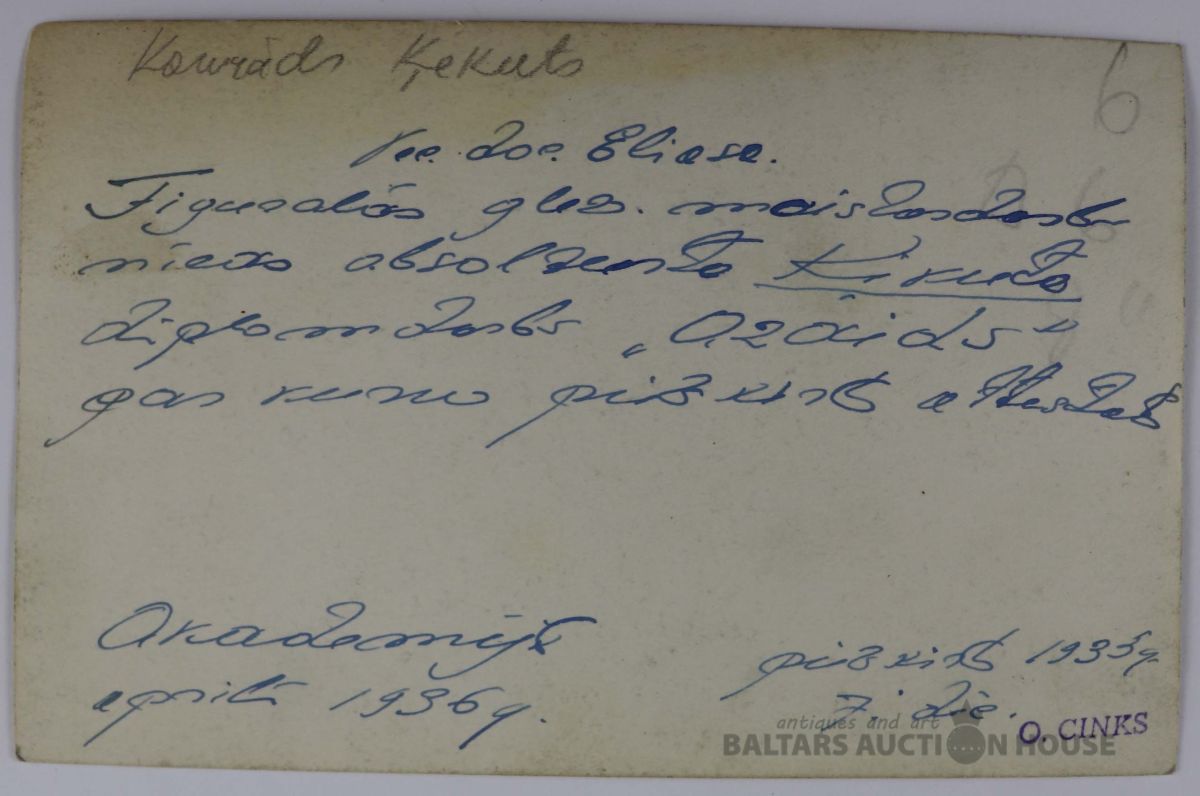 Konrāds Ķekuts
6
Vec. doc. Eliasa.
Figurālās glez. meistardarb-
nīcas absolventa Ķikuta
diplomdarbs „Azaids"
par kuru piešķirt
Akadēmijā
aprīlī 1936 g.
piešķirt 1935 g.
7. dec.
O. CINKS
antiques and art
BALTARS AUCTION HOUSE